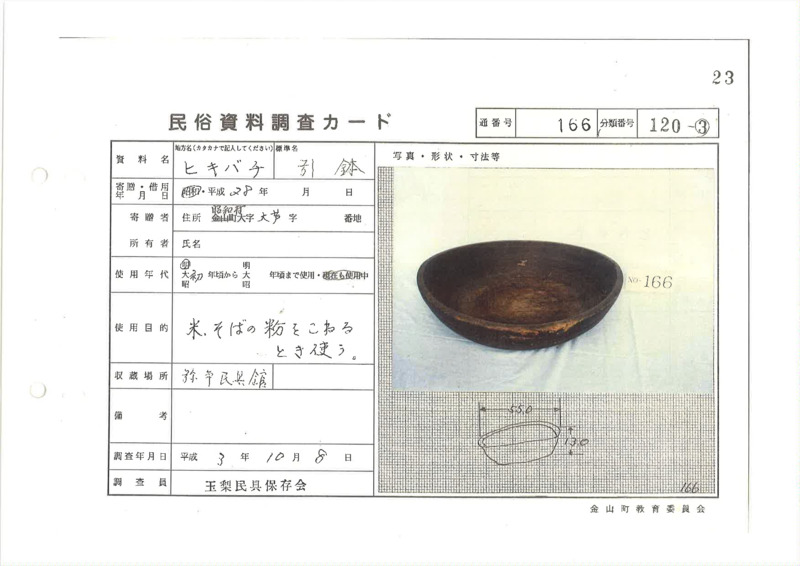 23
民俗資料調査カード
通番号 166 分類番号 120-③
資料名 地方名(カタカナで記入してください) ヒキバチ 標準名 引鉢
寄贈・借用年月日 昭和・平成 28年 月 日
寄贈者 住所 昭和村 金山町大字 大芦 字 番地
所有者 氏名
使用年代 明大昭 初 年頃から 明大昭 年頃まで使用・現在も使用中
使用目的 米、そばの粉をこねる
とき使う。
収蔵場所 民具館
備考
調査年月日 平成 3年 10月 8日
調査員 玉梨民具保存会
写真・形状・寸法等
NO. 166
55.0
13.0
166
金山町教育委員会